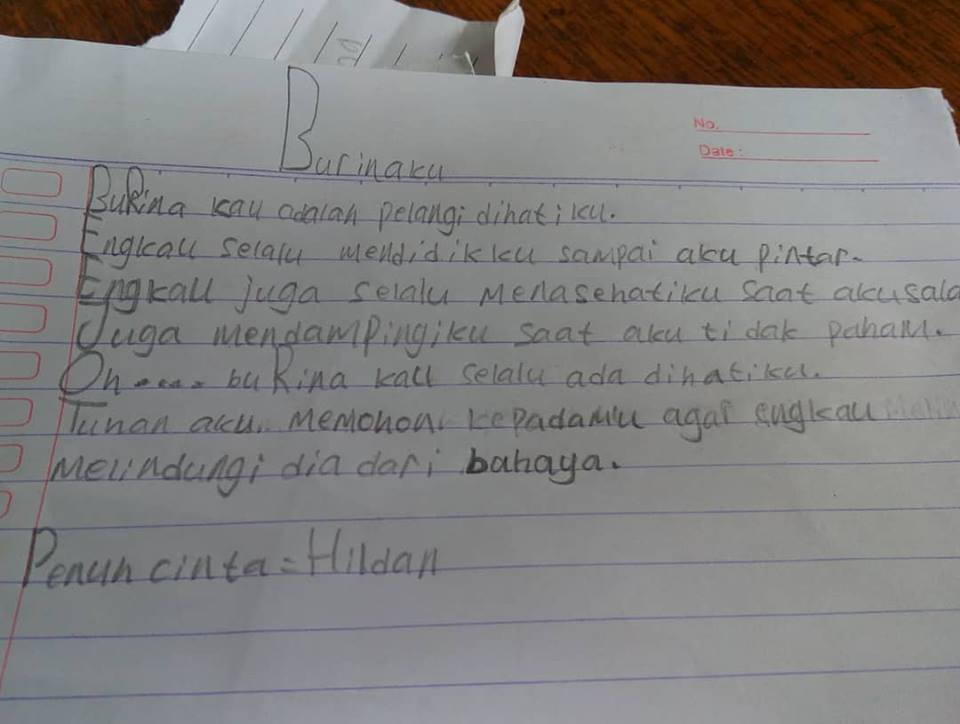 Burinaku
No.
Date:
BuRina kau adalah pelangi dihatiku.
Engkau selalu mendidikku sampai aku pintar.
Engkau juga selalu menasehatiku saat akusala
Juga mendampingiku saat aku tidak paham.
Oh..... buRina kau selalu ada dihatiku.
Tuhan aku memohon kepadamu agar engkau
melindungi dia dari bahaya.
Penuh cinta = Hildan